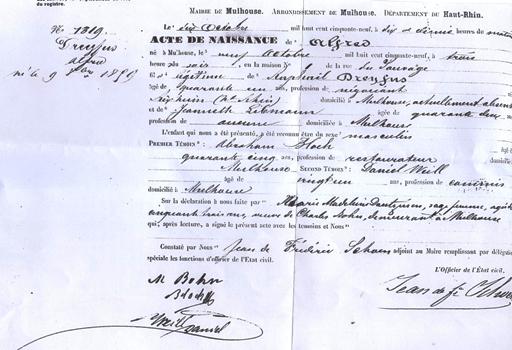 du registre.
Mairie de Mulhouse. Arrondissement de Mulhouse. Département du Haut-Rhin.
N° 1319.
Dreyfus
alfred
né le 9 8bre 1859
Le dix Octobre mil huit cent cinquante-neuf, à dix heures du matin
ACTE DE NAISSANCE de Alfred
né à Mulhouse, le neuf Octobre mil huit cent cinquante-neuf, à trois
heures du soir, en la maison N° de la rue du Sauvage
fils légitime de Raphaël Dreyfus
âgé de quarante un ans, profession de négociant
(Ht Rhin) domicilié à Mulhouse, actuellement absent
et de Jeannette Libmann âgée de quarante deux
profession de aucune domiciliée à Mulhouse
L'enfant qui nous a été présenté, a été reconnu être du sexe masculin
Premier Témoin: Abraham Bloch
quarante cinq ans, profession de restaurateur
Mulhouse Second Témoin: Daniel Weill
âgé de vingt un ans, profession de commis
domicilié à Mulhouse
Sur la déclaration à nous faite par Marie Madeleine sage femme, âgée de
cinquante trois ans, veuve de Charles demeurant à Mulhouse
qui, après lecture, a signé le présent acte avec les témoins et Nous
Constaté par Nous Jean de Frédéric Schoen adjoint au Maire remplissant par délégation
spéciale les fonctions d'officier de l'État civil.
L'Officier de l'État civil.
Bloch
Weill Daniel
Jean de Fr